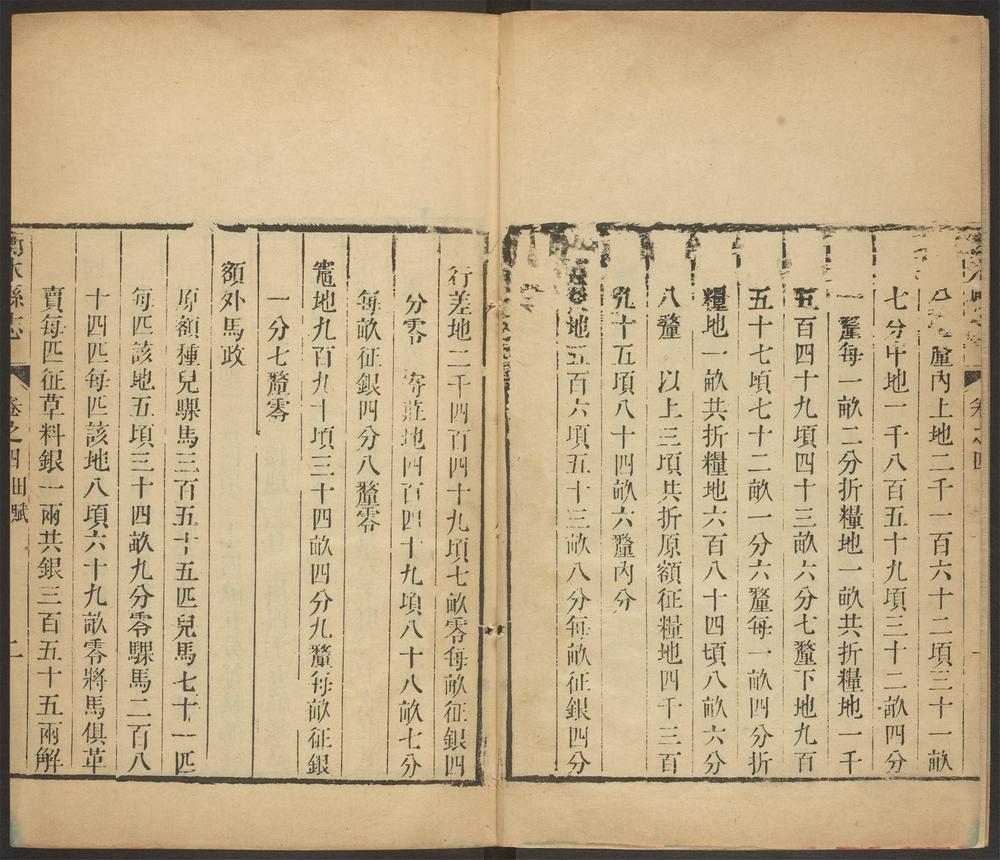 釐内上地二千一百六十二項三十一畝
七分中地一千八百五十九項三十二畝四分
一釐每一畝二分折糧地一畝共折糧地一千
五百四十九項四十三畝六分七釐下地九百
五十七頃七十二畝一分六釐每一畝四分折
糧地一畝共折糧地六百八十四頃八畝六分
八釐 以上三項共折原額征糧地四千三百
九十五項八十四畝六釐内分
地五百六項五十三畝八分每畝征銀四分
行差地二千四百四十九項七畝零每畝征銀四
分零 寄莊地四百四十九項八十八畝七分
每畝征銀四分八釐零
竈地九百九十項三十四畝四分九釐每畝征銀
一分七釐零
額外馬政
原額種兒騍馬三百五十五匹兒馬七十一匹
每匹該地五項三十四畝九分零騍馬二百八
十四匹每匹該地八項六十九畝零將馬俱革
賣每匹征草料銀一兩共銀三百五十五兩解
縣志 卷之四 田賦 二